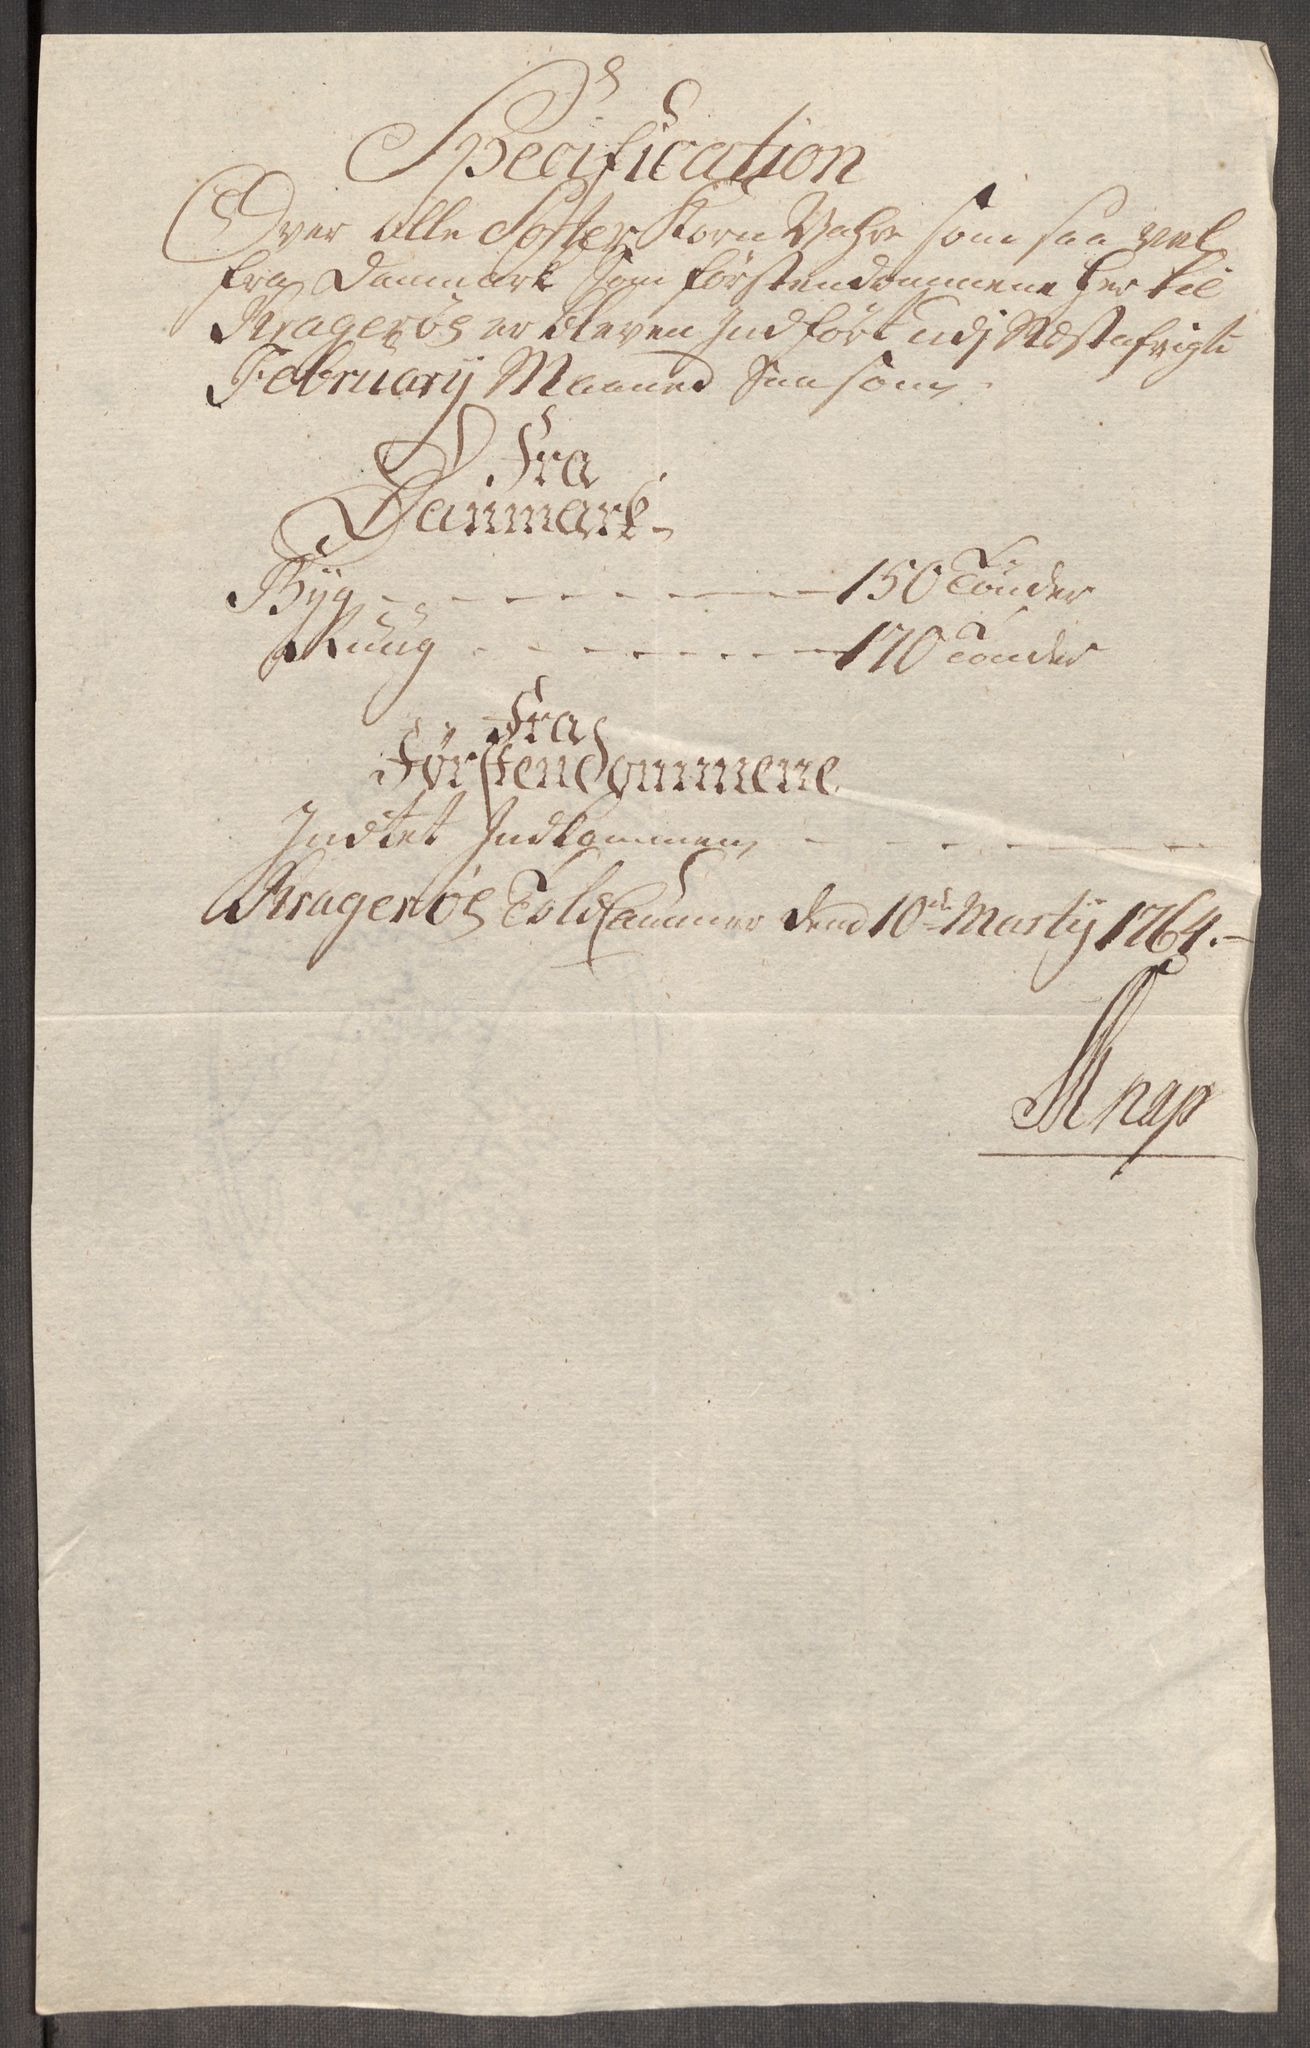 Specification
Over alle Sorter Korn Vahre som saa vel
fra Danmark som förstendommene her til
Kragerøe er bleven Indfört udj Næstafvigte
February Maaned Saasom
Fra
Danmark
Byg 150 Tönder
Ruug 170 Tönder
Fra
Førstendommene
Indtet Indkommen
Kragerøe Told Cammer dend 10de Martij 1764.
Knap